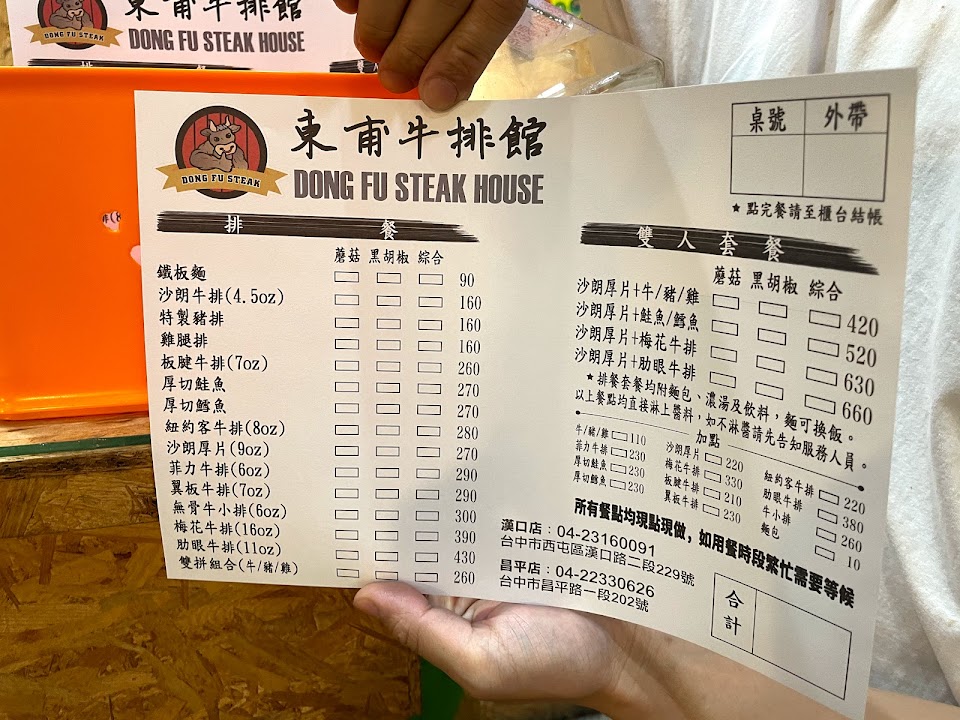 東甫牛排館
DONG FU STEAK
DONG FU STEAK HOUSE
排 餐
東甫牛排館
DONG FU STEAK
DONG FU STEAK HOUSE
桌號 外帶
★點完餐請至櫃台結帳
排 餐
蘑菇 黑胡椒 綜合
鐵板麵 90
沙朗牛排(4.5oz) 160
特製豬排 160
雞腿排 160
板腱牛排(7oz) 260
厚切鮭魚 270
厚切鱈魚 270
紐約客牛排(8oz) 280
沙朗厚片(9oz) 270
菲力牛排(6oz) 290
翼板牛排(7oz) 290
無骨牛小排(6oz) 300
梅花牛排(16oz) 390
肋眼牛排(11oz) 430
雙拼組合(牛/豬/雞) 260
雙人套餐
蘑菇 黑胡椒 綜合
沙朗厚片+牛/豬/雞 420
沙朗厚片+鮭魚/鱈魚 520
沙朗厚片+梅花牛排 630
沙朗厚片+肋眼牛排 660
★排餐套餐均附麵包、濃湯及飲料，麵可換飯。
以上餐點均直接淋上醬料，如不淋醬請先告知服務人員。
加點
牛/豬/雞 110 沙朗厚片 220 紐約客牛排 220
菲力牛排 230 梅花牛排 330 肋眼牛排 380
厚切鮭魚 230 板腱牛排 210 牛小排 260
厚切鱈魚 230 翼板牛排 230 麵包 10
所有餐點均現點現做，如用餐時段繁忙需要等候
漢口店：04-23160091
台中市西屯區漢口路二段229號
昌平店：04-22330626
台中市昌平路一段202號
合計